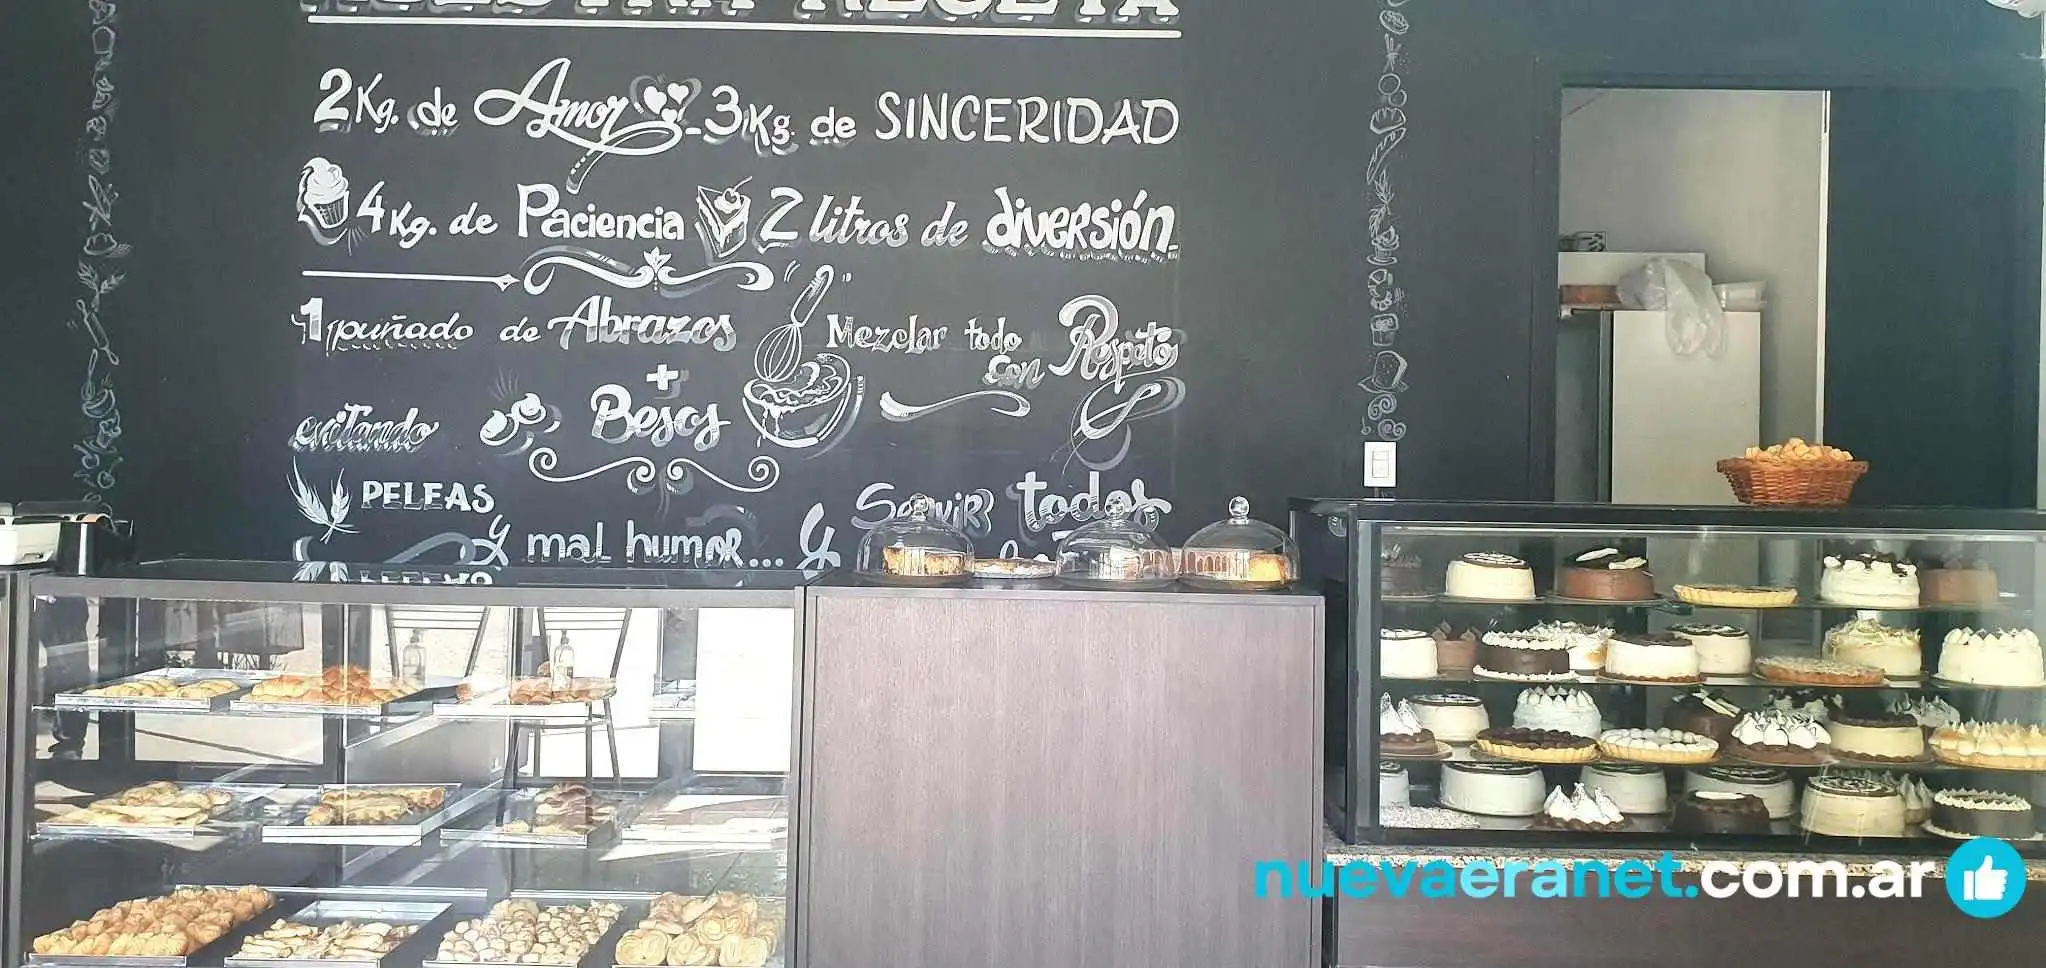 NUESTRA RECETA
2 Kg. de Amor - 3 Kg. de SINCERIDAD
4 Kg. de Paciencia 2 litros de diversión
1 puñado de Abrazos
+
Besos
Mezclar todo
con Respeto
evitando
PELEAS
y mal humor... y
Servir todos
nuevaeranet.com.ar